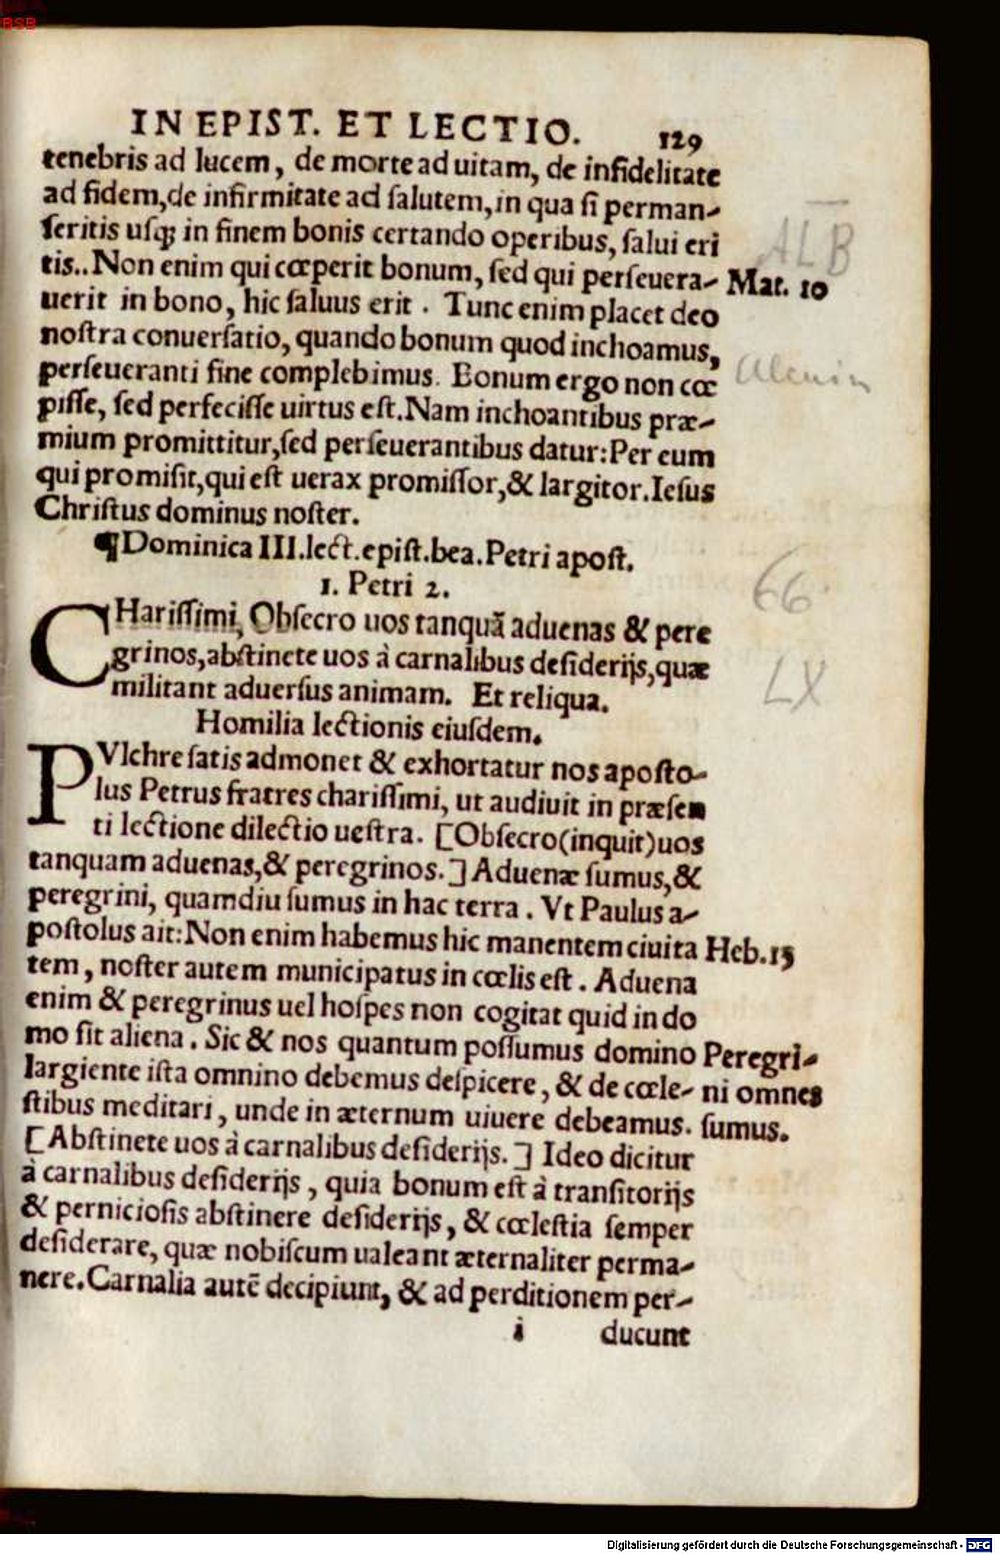 BSB
IN EPIST. ET LECTIO. 129
tenebris ad lucem, de morte ad uitam, de infidelitate
ad fidem, de infirmitate ad ſalutem, in qua ſi perman-
ſeritis uſqꝫ in finem bonis certando operibus, ſalui eri
tis.. Non enim qui cœperit bonum, ſed qui perſeuera- Mat. 10
uerit in bono, hic ſaluus erit . Tunc enim placet deo
noſtra conuerſatio, quando bonum quod inchoamus,
perſeueranti fine complebimus. Bonum ergo non cœ
piſſe, ſed perfeciſſe uirtus eſt. Nam inchoantibus præ-
mium promittitur, ſed perſeuerantibus datur: Per eum
qui promiſit, qui eſt uerax promiſſor, & largitor. Ieſus
Chriſtus dominus noſter.
¶ Dominica III. lect. epiſt. bea. Petri apoſt.
1. Petri 2.
CHariſſimi, Obſecro uos tanquã aduenas & pere
grinos, abſtinete uos à carnalibus deſiderijs, quæ
militant aduerſus animam. Et reliqua.
Homilia lectionis eiuſdem.
PVlchre ſatis admonet & exhortatur nos apoſto-
lus Petrus fratres chariſſimi, ut audiuit in præſen
ti lectione dilectio ueſtra. [Obſecro (inquit) uos
tanquam aduenas, & peregrinos.] Aduenæ ſumus, &
peregrini, quamdiu ſumus in hac terra . Vt Paulus a-
poſtolus ait: Non enim habemus hic manentem ciuita Heb. 13
tem, noſter autem municipatus in cœlis eſt . Aduena
enim & peregrinus uel hoſpes non cogitat quid in do
mo ſit aliena . Sic & nos quantum poſſumus domino Peregri-
largiente iſta omnino debemus deſpicere, & de cœle- ni omnes
ſtibus meditari, unde in æternum uiuere debeamus. ſumus.
[Abſtinete uos à carnalibus deſiderijs.] Ideo dicitur
à carnalibus deſiderijs, quia bonum eſt à tranſitorijs
& pernicioſis abſtinere deſiderijs, & cœleſtia ſemper
deſiderare, quæ nobiſcum ualeant æternaliter perma-
nere. Carnalia autẽ decipiunt, & ad perditionem per-
i ducunt
ALB
Alcuin
66
LX
Digitalisierung gefördert durch die Deutsche Forschungsgemeinschaft - DFG